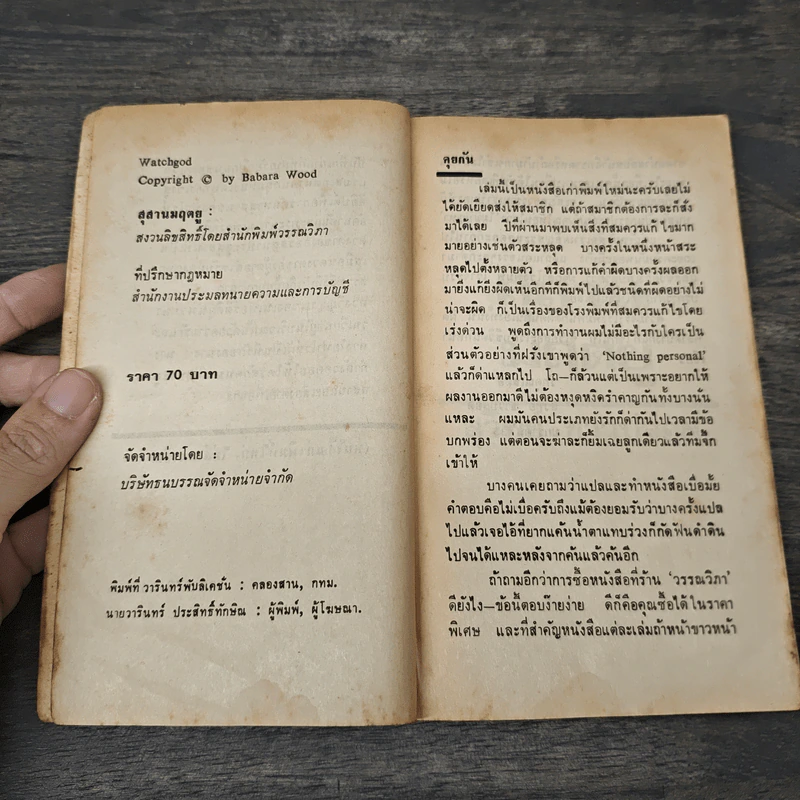 Watchgod
Copyright © by Babara Wood
สุสานมฤตยู :
สงวนลิขสิทธิ์โดยสำนักพิมพ์วรรณวิภา
ที่ปรึกษากฎหมาย
สำนักงานประมลทนายความและการบัญชี
ราคา 70 บาท
จัดจำหน่ายโดย :
บริษัทธนบรรณจัดจำหน่ายจำกัด
พิมพ์ที่ วารินทร์พับลิเคชั่น : คลองสาน, กทม.
นายวารินทร์ ประสิทธิ์ทักษิณ : ผู้พิมพ์, ผู้โฆษณา.
คุยกัน
เล่มนี้เป็นหนังสือเก่าพิมพ์ใหม่นะครับเลยไม่
ได้ยัดเยียดส่งให้สมาชิก แต่ถ้าสมาชิกต้องการละก็สั่ง
มาได้เลย ปีที่ผ่านมาพบเห็นสิ่งที่สมควรแก้ไขมาก
มายอย่างเช่นตัวสระหลุด บางครั้งในหนึ่งหน้าสระ
หลุดไปตั้งหลายตัว หรือการแก้คำผิดบางครั้งผลออก
มายิ่งแก้ยิ่งผิดเห็นอีกทีก็พิมพ์ไปแล้วชนิดที่ผิดอย่างไม่
น่าจะผิด ก็เป็นเรื่องของโรงพิมพ์ที่สมควรแก้ไขโดย
เร่งด่วน พูดถึงการทำงานผมไม่มีอะไรกับใครเป็น
ส่วนตัวอย่างที่ฝรั่งเขาพูดว่า ‘Nothing personal’
แล้วก็ด่าแหลกไป โถ—ก็ล้วนแต่เป็นเพราะอยากให้
ผลงานออกมาดีไม่ต้องหงุดหงิดรำคาญกันทั้งบางนั่น
แหละ ผมมันคนประเภทยังรักก็ด่ากันไปเวลามีข้อ
บกพร่อง แต่ตอนจะฆ่าละก็ยิ้มเฉยลูกเดียวแล้วทีมจึก
เข้าให้
บางคนเคยถามว่าแปลและทำหนังสือเบื่อมั้ย
คำตอบคือไม่เบื่อครับถึงแม้ต้องยอมรับว่าบางครั้งแปล
ไปแล้วเจอไอ้ที่ยากแค้นน้ำตาแทบร่วงก็กัดฟันดำดิน
ไปจนได้แหละหลังจากค้นแล้วค้นอีก
ถ้าถามอีกว่าการซื้อหนังสือที่ร้าน ‘วรรณวิภา’
ดียังไง—ข้อนี้ตอบง๊ายง่าย ดีก็คือคุณซื้อได้ในราคา
พิเศษ และที่สำคัญหนังสือแต่ละเล่มถ้าหน้าขาวหน้า